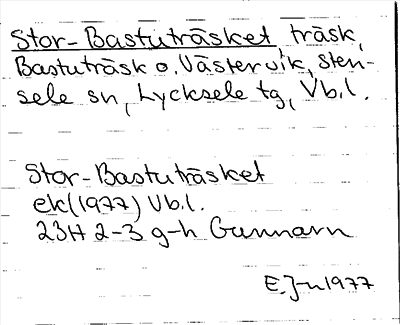 Stor-Bastuträsket, träsk,
Bastuträsk o. Västervik, Sten-
sele sn, Lycksele tg, Vb.l.
Stor-Bastuträsket
ek(1977) Vb.l.
23H 2-3 g-h Gunnarn
E.J-n 1977